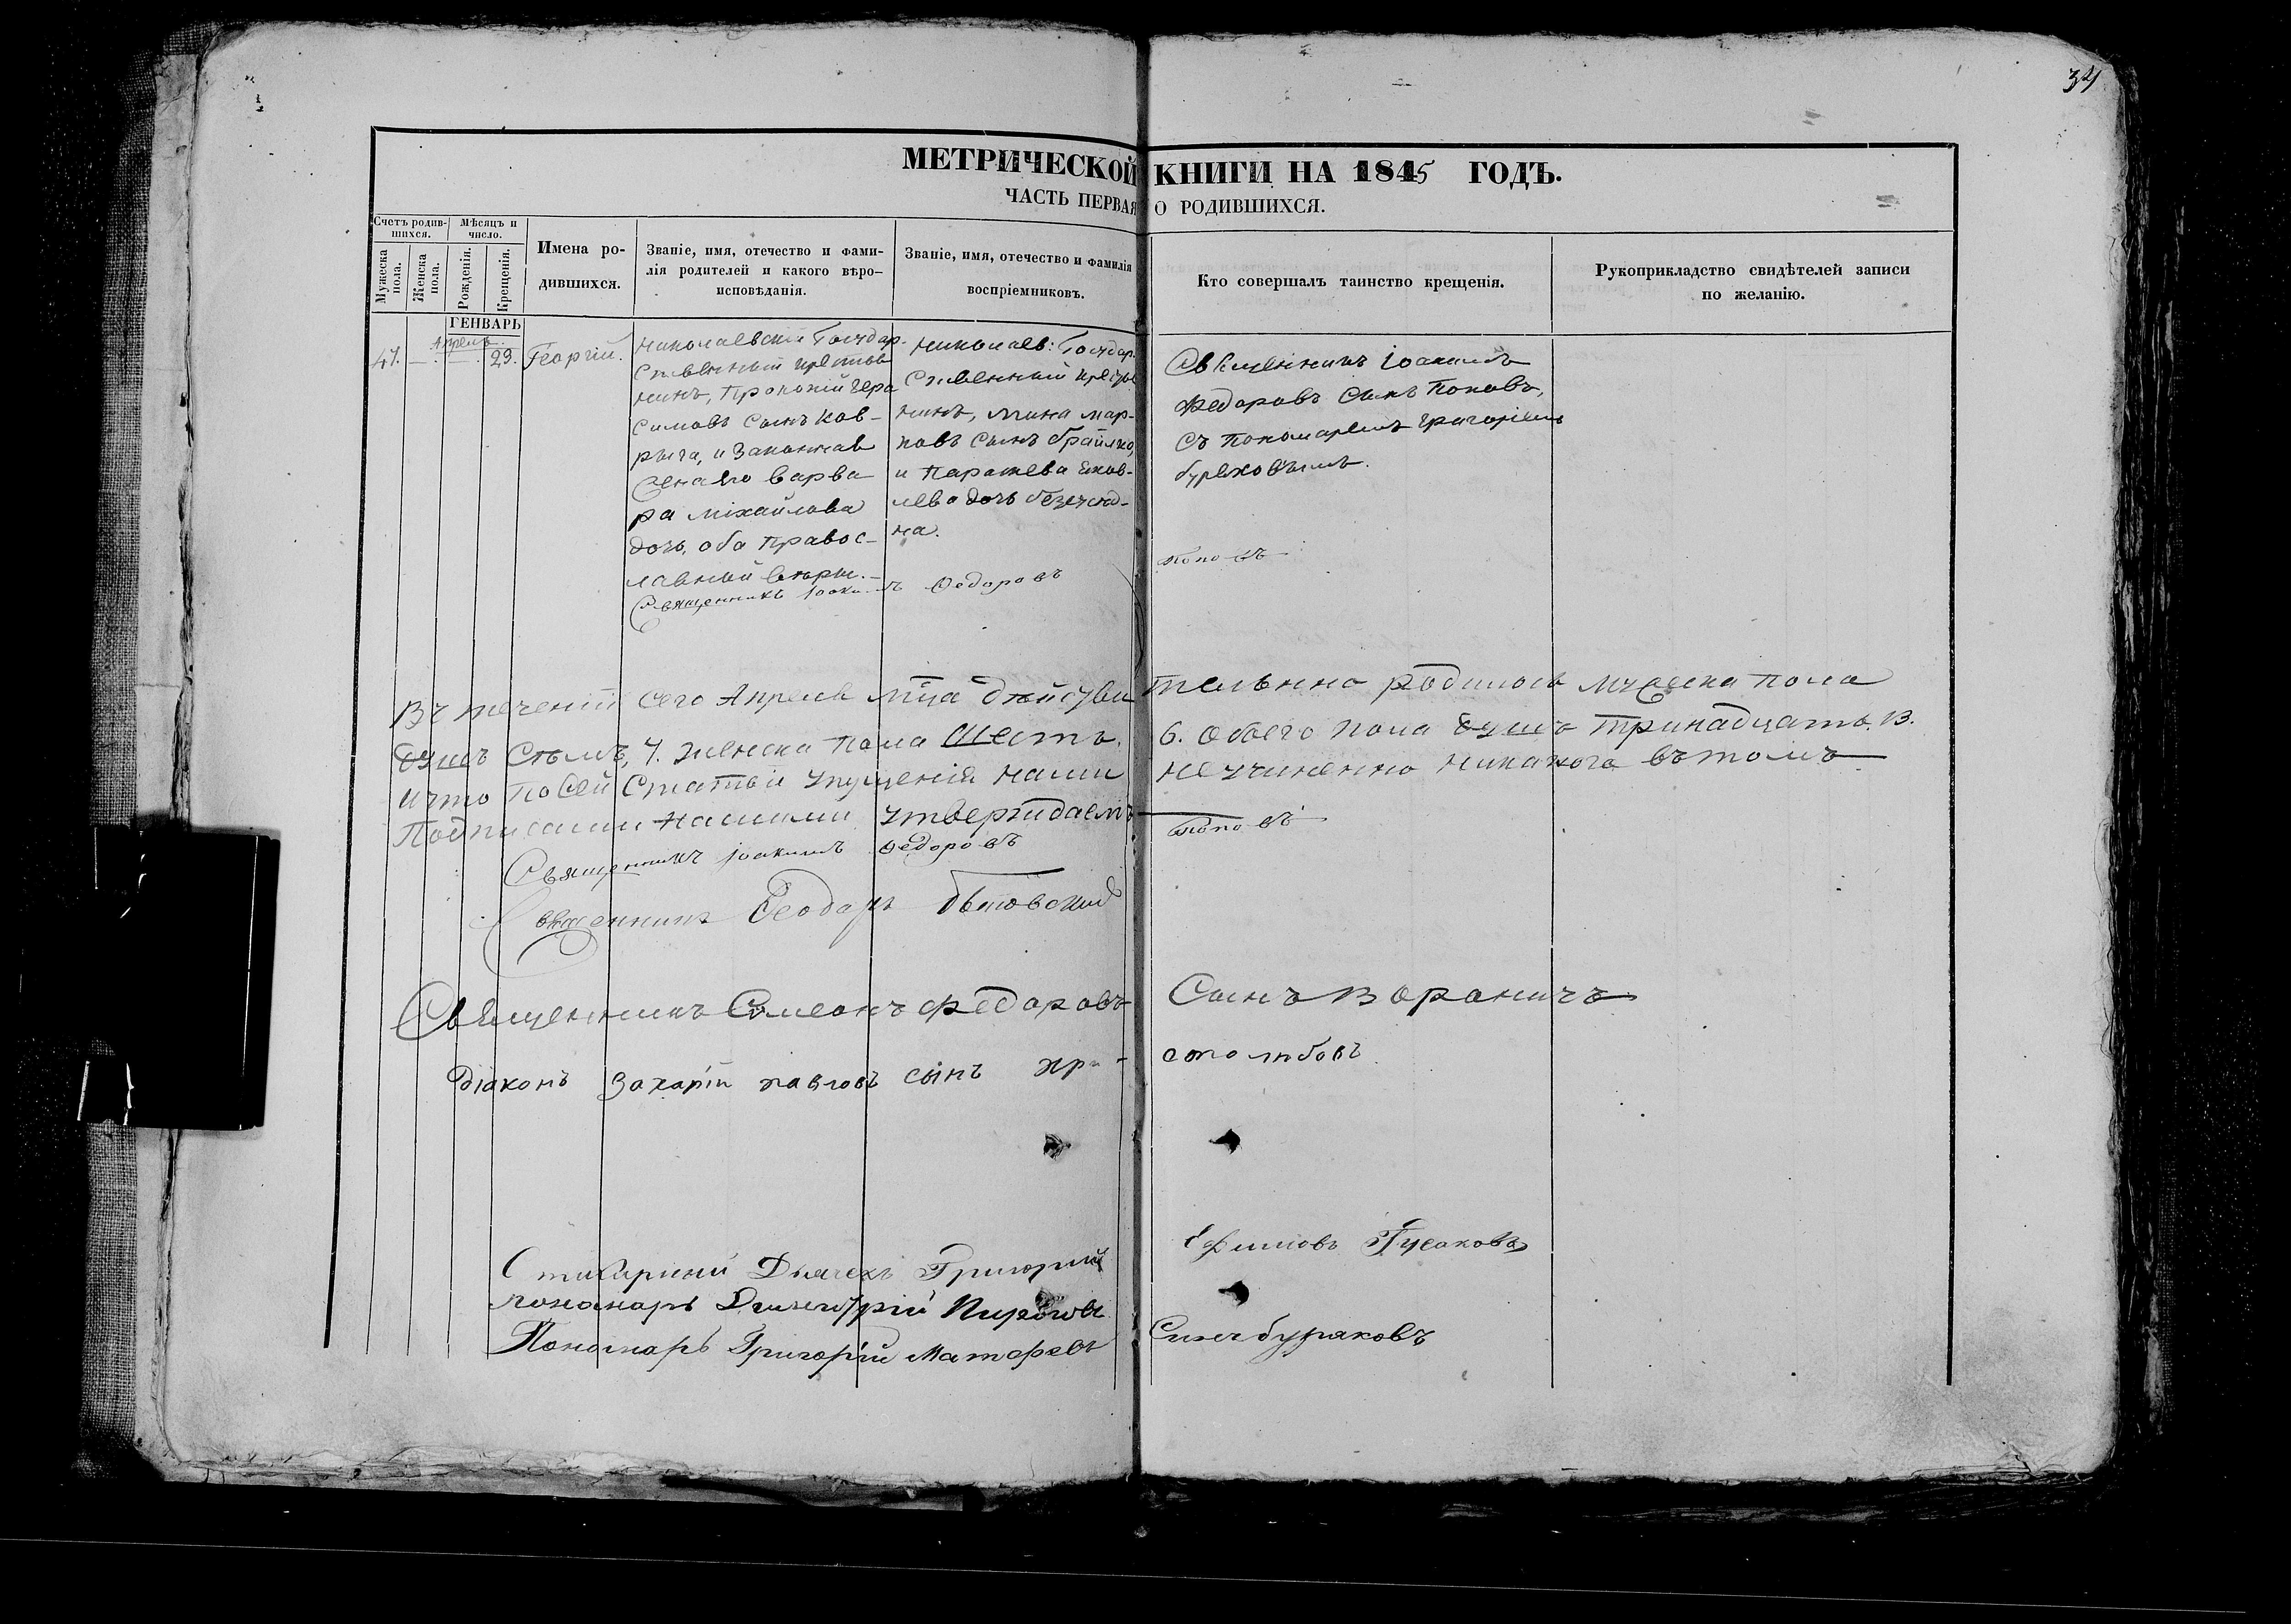 34
МЕТРИЧЕСКОЙ КНИГИ НА 1845 ГОДЪ.
ЧАСТЬ ПЕРВАЯ О РОДИВШИХСЯ.
Счетъ родив-
шихся.
Мѣсяцъ и
число.
Мужеска
пола.
Женска
пола.
Рожденія.
Крещенія.
Имена ро-
дившихся.
Званіе, имя, отечество и фами-
лія родителей и какого вѣро-
исповѣданія.
Званіе, имя, отечество и фамилія
воспріемниковъ.
Кто совершалъ таинство крещенія.
Рукоприкладство свидѣтелей записи
по желанію.
ГЕНВАРЬ
Апрель
47.
23.
Георгій.
Николаевскій Государ-
ственный крестья
нинъ, Прокопій Гера
симовъ сынъ Ков-
рыга, и законная
жена его Варва
ра Міхайлова
дочь, оба правос-
лавной веры.
Николаев: Государ-
ственный крестья
нинъ, Мина Мар-
ковъ сынъ Брайлко,
и Параскева Яков-
лева дочь
на.
Священникъ Іоакимъ
Федоровъ сынъ Поповъ,
съ пономаремъ Григоріемъ
Буряковымъ.
Священникъ Іоакимъ Федоровъ Поповъ
Въ теченіи сего Апреля мца действительно родилось мужеска пола
душъ семъ, 7. женска пола шесть. 6. обоего пола душъ тринадцать. 13.
и что по сей статьи упущенія нами не учиненно никакого въ томъ
Подписами нашими утверждаемъ
Священникъ Іоакимъ Федоровъ Поповъ
Священникъ Феодоръ
Священникъ Сѵмеонъ Федоровъ Сынъ Вораничъ
Діаконъ Захарій Павловъ сынъ Христолюбовъ
Стихарный Дьячекъ Григорий Ефимовъ Гусаковъ
пономарь Димитрій Пироговъ
Пономарь Григорій Матфевъ Сынъ Буряковъ